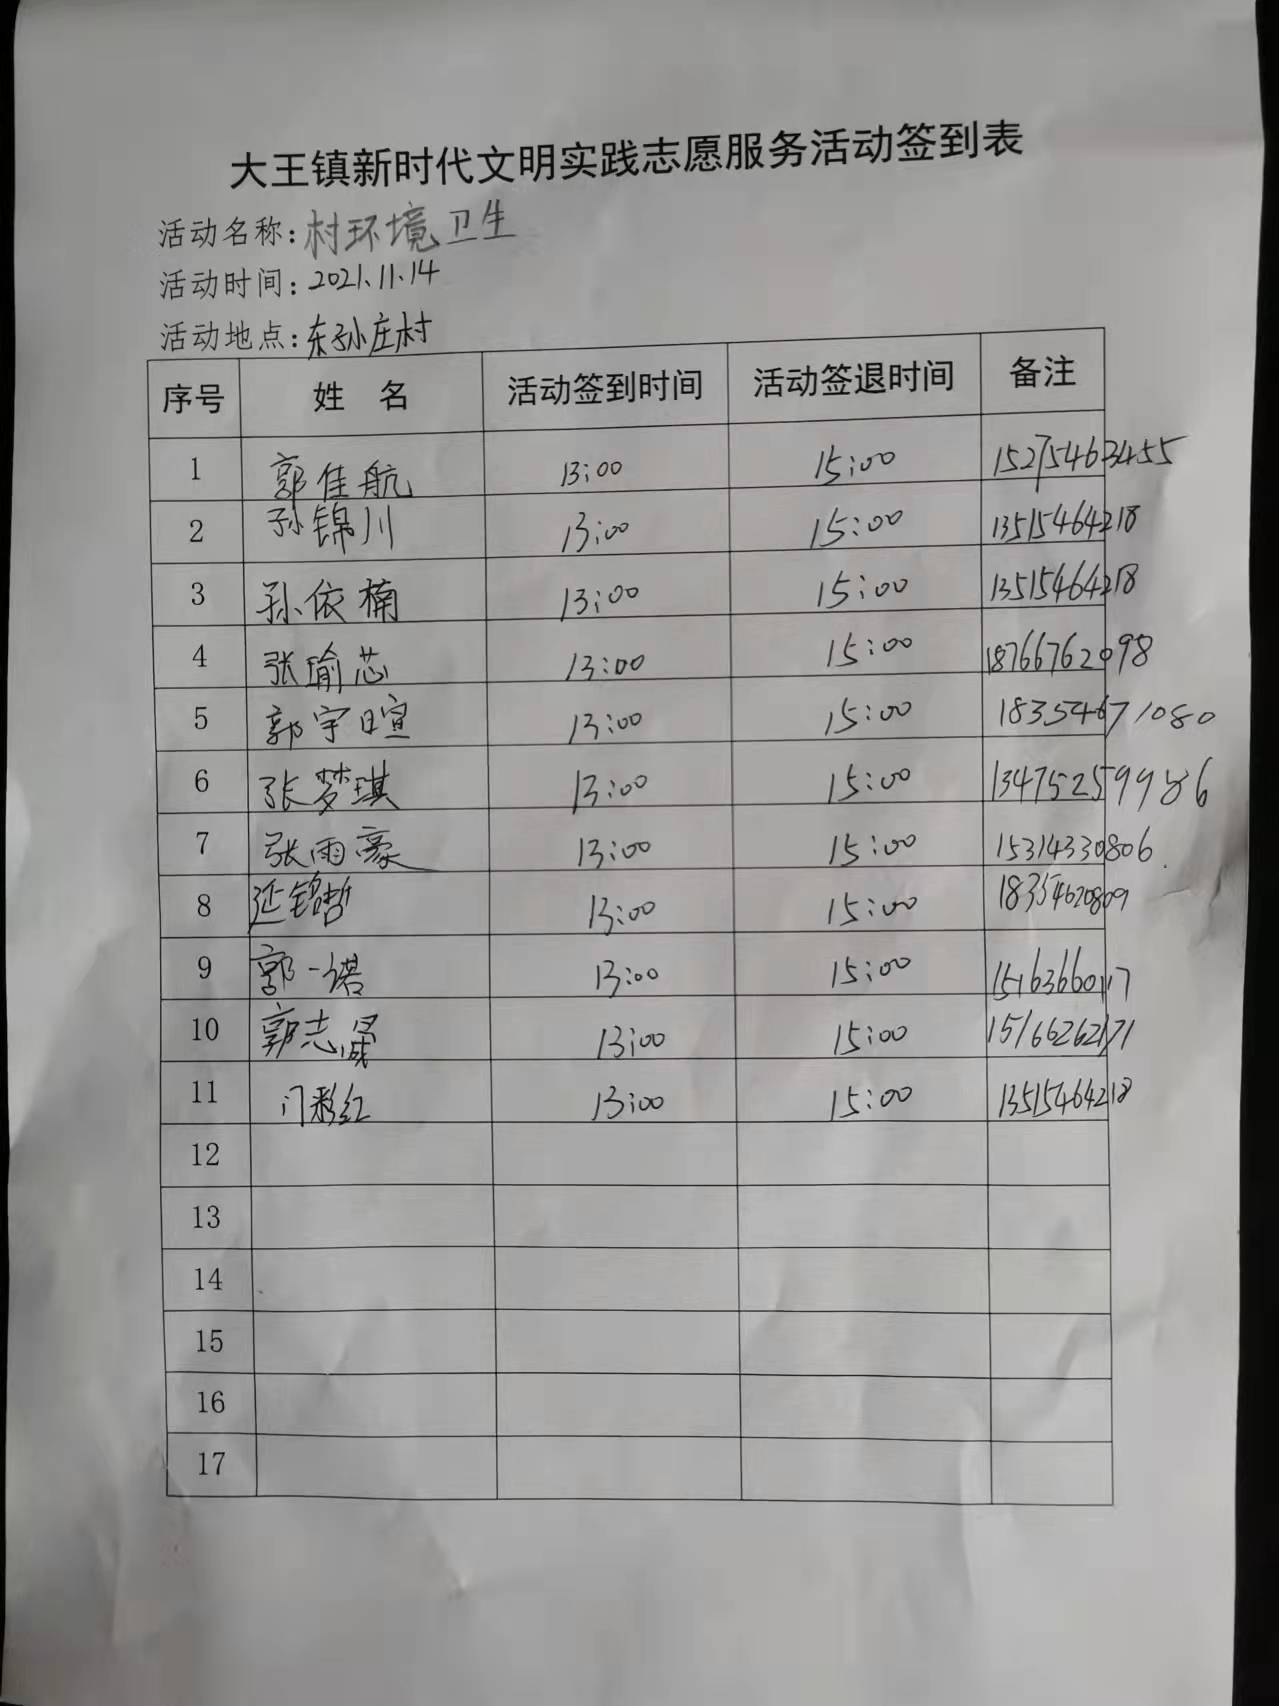 大王镇新时代文明实践志愿服务活动签到表
活动名称:村环境卫生
活动时间:2021.11.14
活动地点:东孙庄村
序号 姓 名 活动签到时间 活动签退时间 备注
1 郭佳航 13:00 15:00 15275463455
2 孙锦川 13:00 15:00 13515464218
3 孙依楠 13:00 15:00 13515464218
4 张瑜芯 13:00 15:00 18766762098
5 郭宇暄 13:00 15:00 18354671080
6 张梦琪 13:00 15:00 13475259986
7 张雨豪 13:00 15:00 15314330806
8 延铭哲 13:00 15:00 18354620809
9 郭一诺 13:00 15:00 15163660117
10 郭志晟 13:00 15:00 15166262171
11 门彩红 13:00 15:00 13515464218
12
13
14
15
16
17